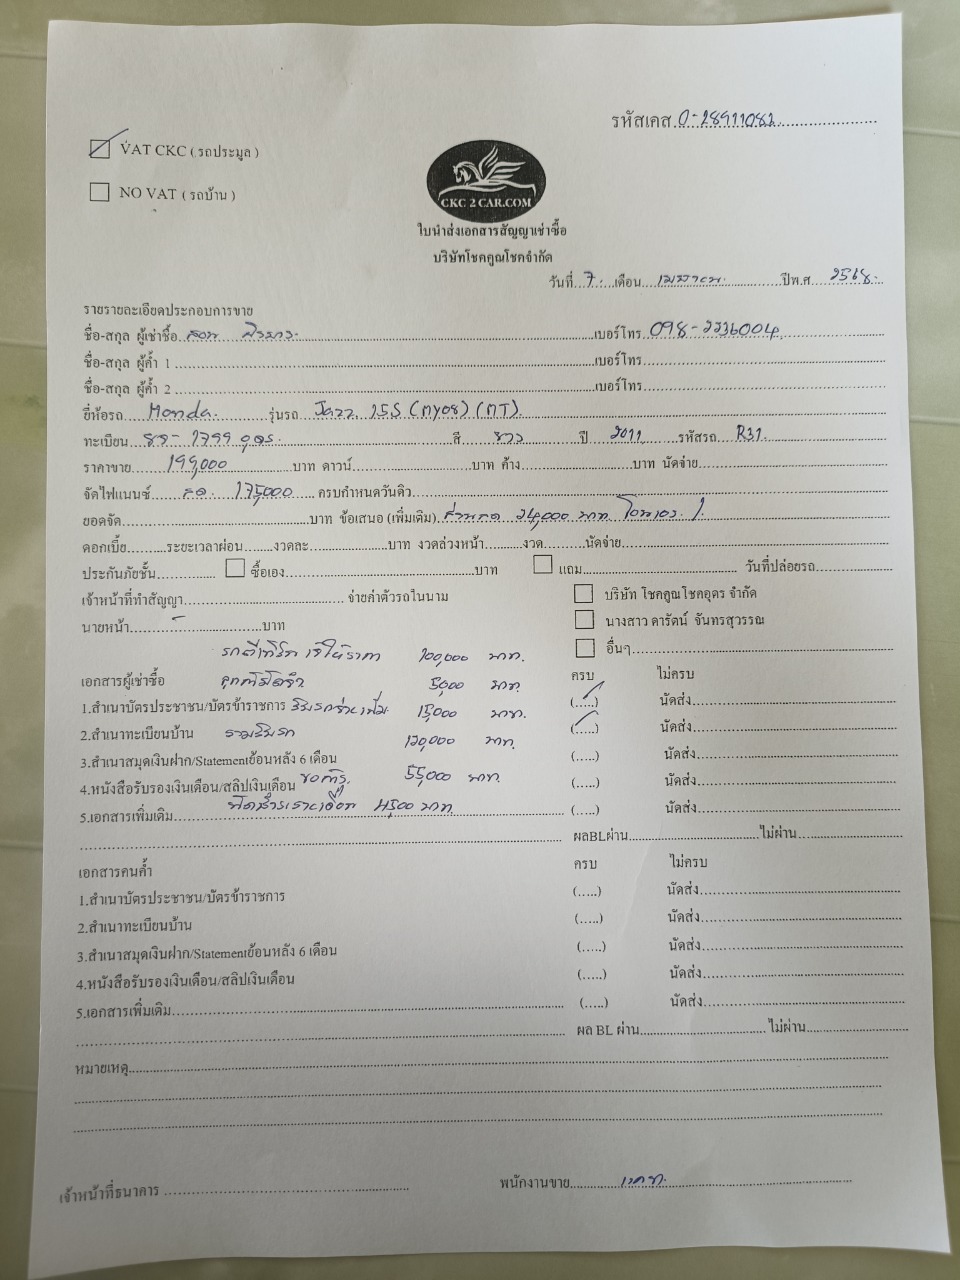 รหัสเคส 0-28911082
VAT CKC ( รถประมูล )
NO VAT ( รถบ้าน )
CKC 2 CAR.COM
ใบนำส่งเอกสารสัญญาเช่าซื้อ
บริษัทโชคคูณโชคจำกัด
วันที่ 7 เดือน เมษายน ปีพ.ศ 2568
รายรายละเอียดประกอบการขาย
ชื่อ-สกุล ผู้เช่าซื้อ เบอร์โทร 098-2236004
ชื่อ-สกุล ผู้ค้ำ 1 เบอร์โทร
ชื่อ-สกุล ผู้ค้ำ 2 เบอร์โทร
ยี่ห้อรถ Honda รุ่นรถ Jazz 1.5S (MY08) (MT)
ทะเบียน 1799 อุดร สี ขาว ปี 2011 รหัสรถ R31
ราคาขาย 199,000 บาท ดาวน์ บาท ค้าง บาท นัดจ่าย
จัดไฟแนนซ์ สด 175,000 ครบกำหนดวันคิว
ยอดจัด บาท ข้อเสนอ (เพิ่มเติม) ส่วนลด 24,000 บาท
ดอกเบี้ย ระยะเวลาผ่อน งวดละ บาท งวดล่วงหน้า งวด นัดจ่าย
ประกันภัยชั้น ซื้อเอง บาท แถม วันที่ปล่อยรถ
เจ้าหน้าที่ทำสัญญา จ่ายค่าตัวรถในนาม
บริษัท โชคคูณโชคอุดร จำกัด
นายหน้า บาท
นางสาว ดารัตน์ จันทรสุวรรณ
อื่นๆ
รถตีเทิร์น ให้ราคา 100,000 บาท
เอกสารผู้เช่าซื้อ ครบ ไม่ครบ
ลูกค้ามัดจำ 5,000 บาท
1.สำเนาบัตรประชาชน/บัตรข้าราชการ 15,000 บาท นัดส่ง
2.สำเนาทะเบียนบ้าน 120,000 บาท นัดส่ง
3.สำเนาสมุดเงินฝาก/Statementย้อนหลัง 6 เดือน นัดส่ง
4.หนังสือรับรองเงินเดือน/สลิปเงินเดือน ขอกู้ 55,000 บาท นัดส่ง
5.เอกสารเพิ่มเติม 4,500 บาท นัดส่ง
ผลBLผ่าน ไม่ผ่าน
เอกสารคนค้ำ ครบ ไม่ครบ
1.สำเนาบัตรประชาชน/บัตรข้าราชการ นัดส่ง
2.สำเนาทะเบียนบ้าน นัดส่ง
3.สำเนาสมุดเงินฝาก/Statementย้อนหลัง 6 เดือน นัดส่ง
4.หนังสือรับรองเงินเดือน/สลิปเงินเดือน นัดส่ง
5.เอกสารเพิ่มเติม นัดส่ง
ผล BL ผ่าน ไม่ผ่าน
หมายเหตุ
เจ้าหน้าที่ธนาคาร พนักงานขาย